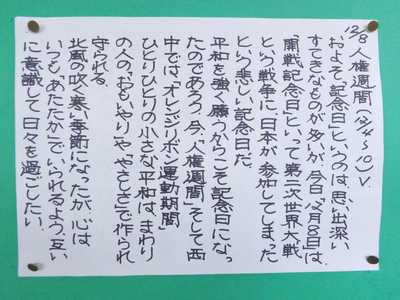 12/8 人権週間(12/4~10)∨.
およそ「記念日」というのは、思い出深い
すてきなものが多いが、今日12月8日は、
「開戦記念日」といって第二次世界大戦
という戦争に日本が参加してしまった
という悲しい記念日だ。
平和を強く願うからこそ記念日になっ
たのであろう。今、「人権週間」そして西
中では、「オレンジリボン運動期間」
ひとりひとりの小さな平和は、まわり
の人の「おもいやり」や「やさしさ」で作られ
守られる。
北風の吹く寒い季節になったが、心は
いつも「あたたか」でいられるよう、互い
に意識して日々を過ごしたい。